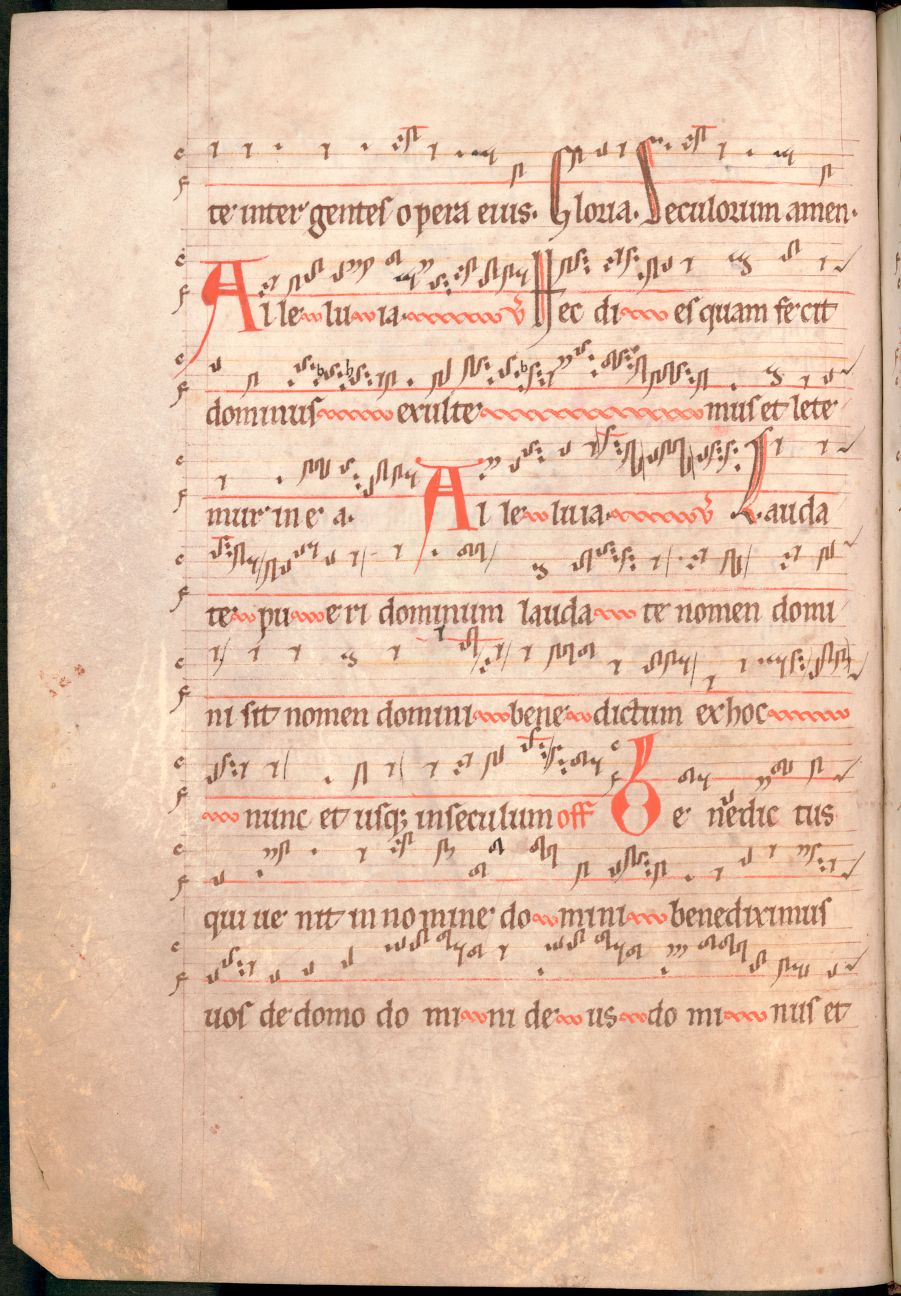 te inter gentes opera eius. Gloria. Seculorum amen.
Alleluia. ℣ Hec dies quam fecit
dominus exultemus et lete
mur in ea. Alleluia. ℣ Lauda
te pueri dominum laudate nomen domi
ni sit nomen domini benedictum ex hoc
nunc et usq; in seculum off Benedictus
qui uenit in nomine domini benediximus
uos de domo domini deus dominus et